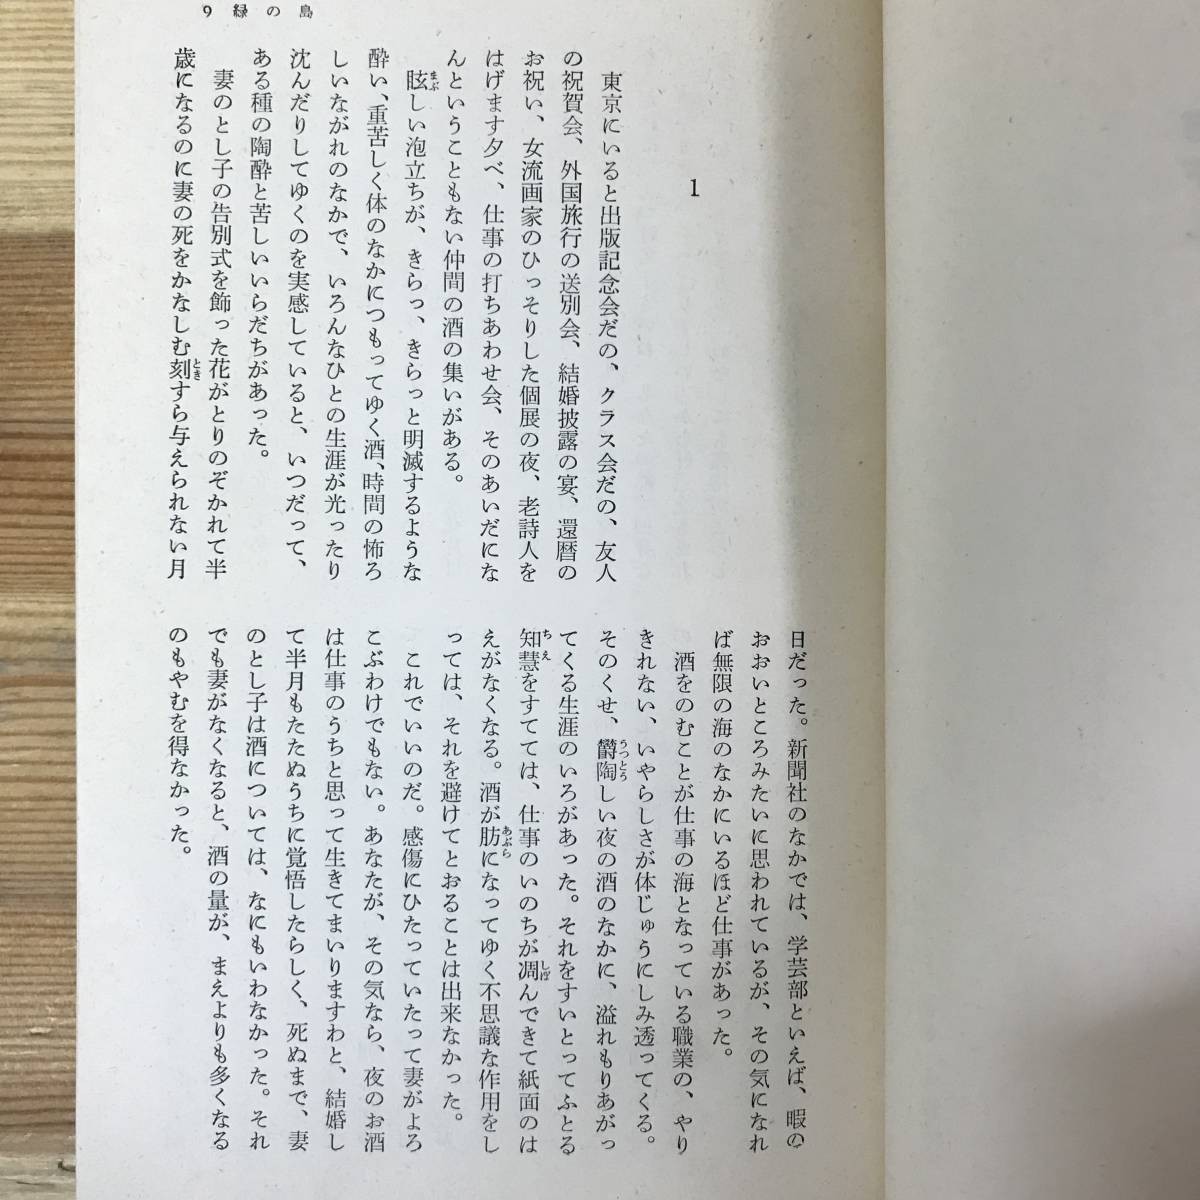 9 緑の島
1
東京にいると出版記念会だの、クラス会だの、友人
の祝賀会、外国旅行の送別会、結婚披露の宴、還暦の
お祝い、女流画家のひっそりした個展の夜、老詩人を
はげます夕べ、仕事の打ちあわせ会、そのあいだにな
んということもない仲間の酒の集いがある。
眩しい泡立ちが、きらっ、きらっと明滅するような
まぶ
酔い、重苦しく体のなかにつもってゆく酒、時間の怖ろ
しいながれのなかで、いろんなひとの生涯が光ったり
沈んだりしてゆくのを実感していると、いつだって、
ある種の陶酔と苦しいいらだちがあった。
妻のとし子の告別式を飾った花がとりのぞかれて半
歳になるのに妻の死をかなしむ刻すら与えられない月
とき
日だった。新聞社のなかでは、学芸部といえば、暇の
おおいところみたいに思われているが、その気になれ
ば無限の海のなかにいるほど仕事があった。
酒をのむことが仕事の海となっている職業の、やり
きれない、いやらしさが体じゅうにしみ透ってくる。
そのくせ、欝陶しい夜の酒のなかに、溢れもりあがっ
うつとう
てくる生涯のいろがあった。それをすいとってふとる
知慧をすてては、仕事のいのちが凋んできて紙面のは
ちえ
しぼ
えがなくなる。酒が肪になってゆく不思議な作用をし
あぶら
っては、それを避けてとおることは出来なかった。
これでいいのだ。感傷にひたっていたって妻がよろ
こぶわけでもない。あなたが、その気なら、夜のお酒
は仕事のうちと思って生きてまいりますわと、結婚し
て半月もたたぬうちに覚悟したらしく、死ぬまで、妻
のとし子は酒については、なにもいわなかった。それ
でも妻がなくなると、酒の量が、まえよりも多くなる
のもやむを得なかった。